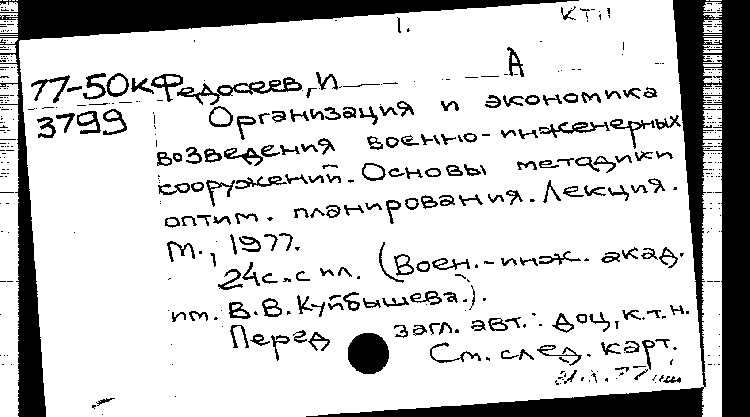 1.
КТП
77-50к Федосеев, И А
3799 Организация и экономика
возведения военно-инженерных
сооружений. Основы методики
оптим. планирования. Лекция.
М., 1977.
24с. с ил. (Воен.-инж. акад.
им. В.В. Куйбышева.).
Перед загл. авт.: доц, к.т.н.
См. след. карт.